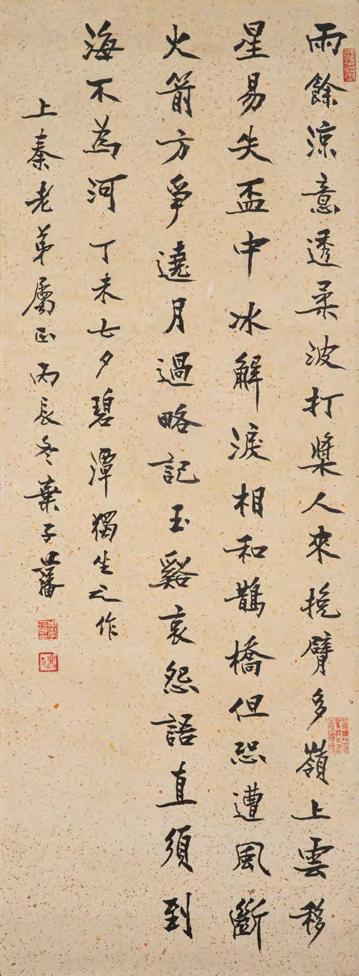 雨餘涼意透柔波打槳人來挽臂多嶺上雲移
星易失盃中冰解淚相和鵲橋但恐遭風斷
火箭方爭遶月過略記玉谿哀怨語直須到
海不為河 丁未七夕碧潭獨坐之作
上秦老弟屬正 丙辰冬葉子